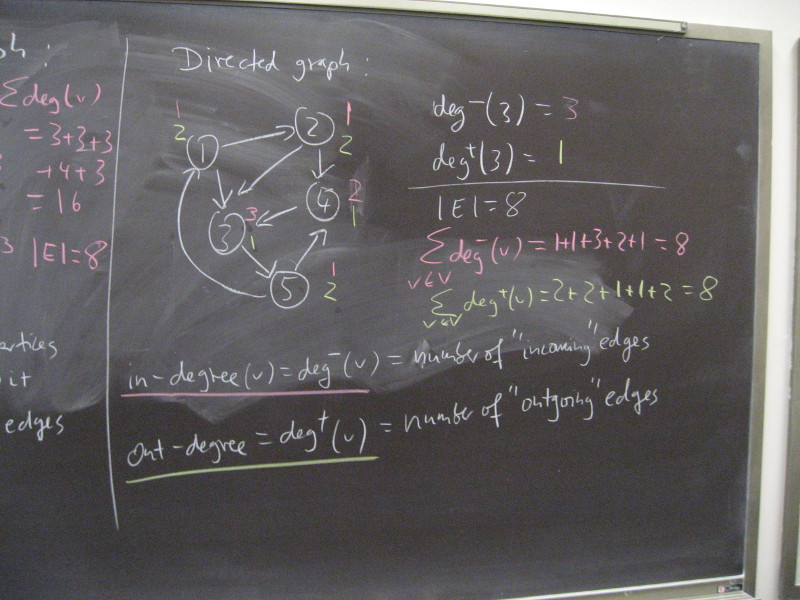 h:
Σdeg(v)
= 3+3+3
+4+3
= 16
3 |E|=8
vertices
it
edges
Directed graph:
1
2
1
2
1
2
3
1
3
4
2
1
5
1
2
deg⁻(3) = 3
deg⁺(3) = 1
|E|=8
Σ deg⁻(v) = 1+1+3+2+1 = 8
v∈V
Σ deg⁺(v) = 2+2+1+1+2 = 8
v∈V
in-degree(v) = deg⁻(v) = number of "incoming" edges
out-degree = deg⁺(v) = number of "outgoing" edges